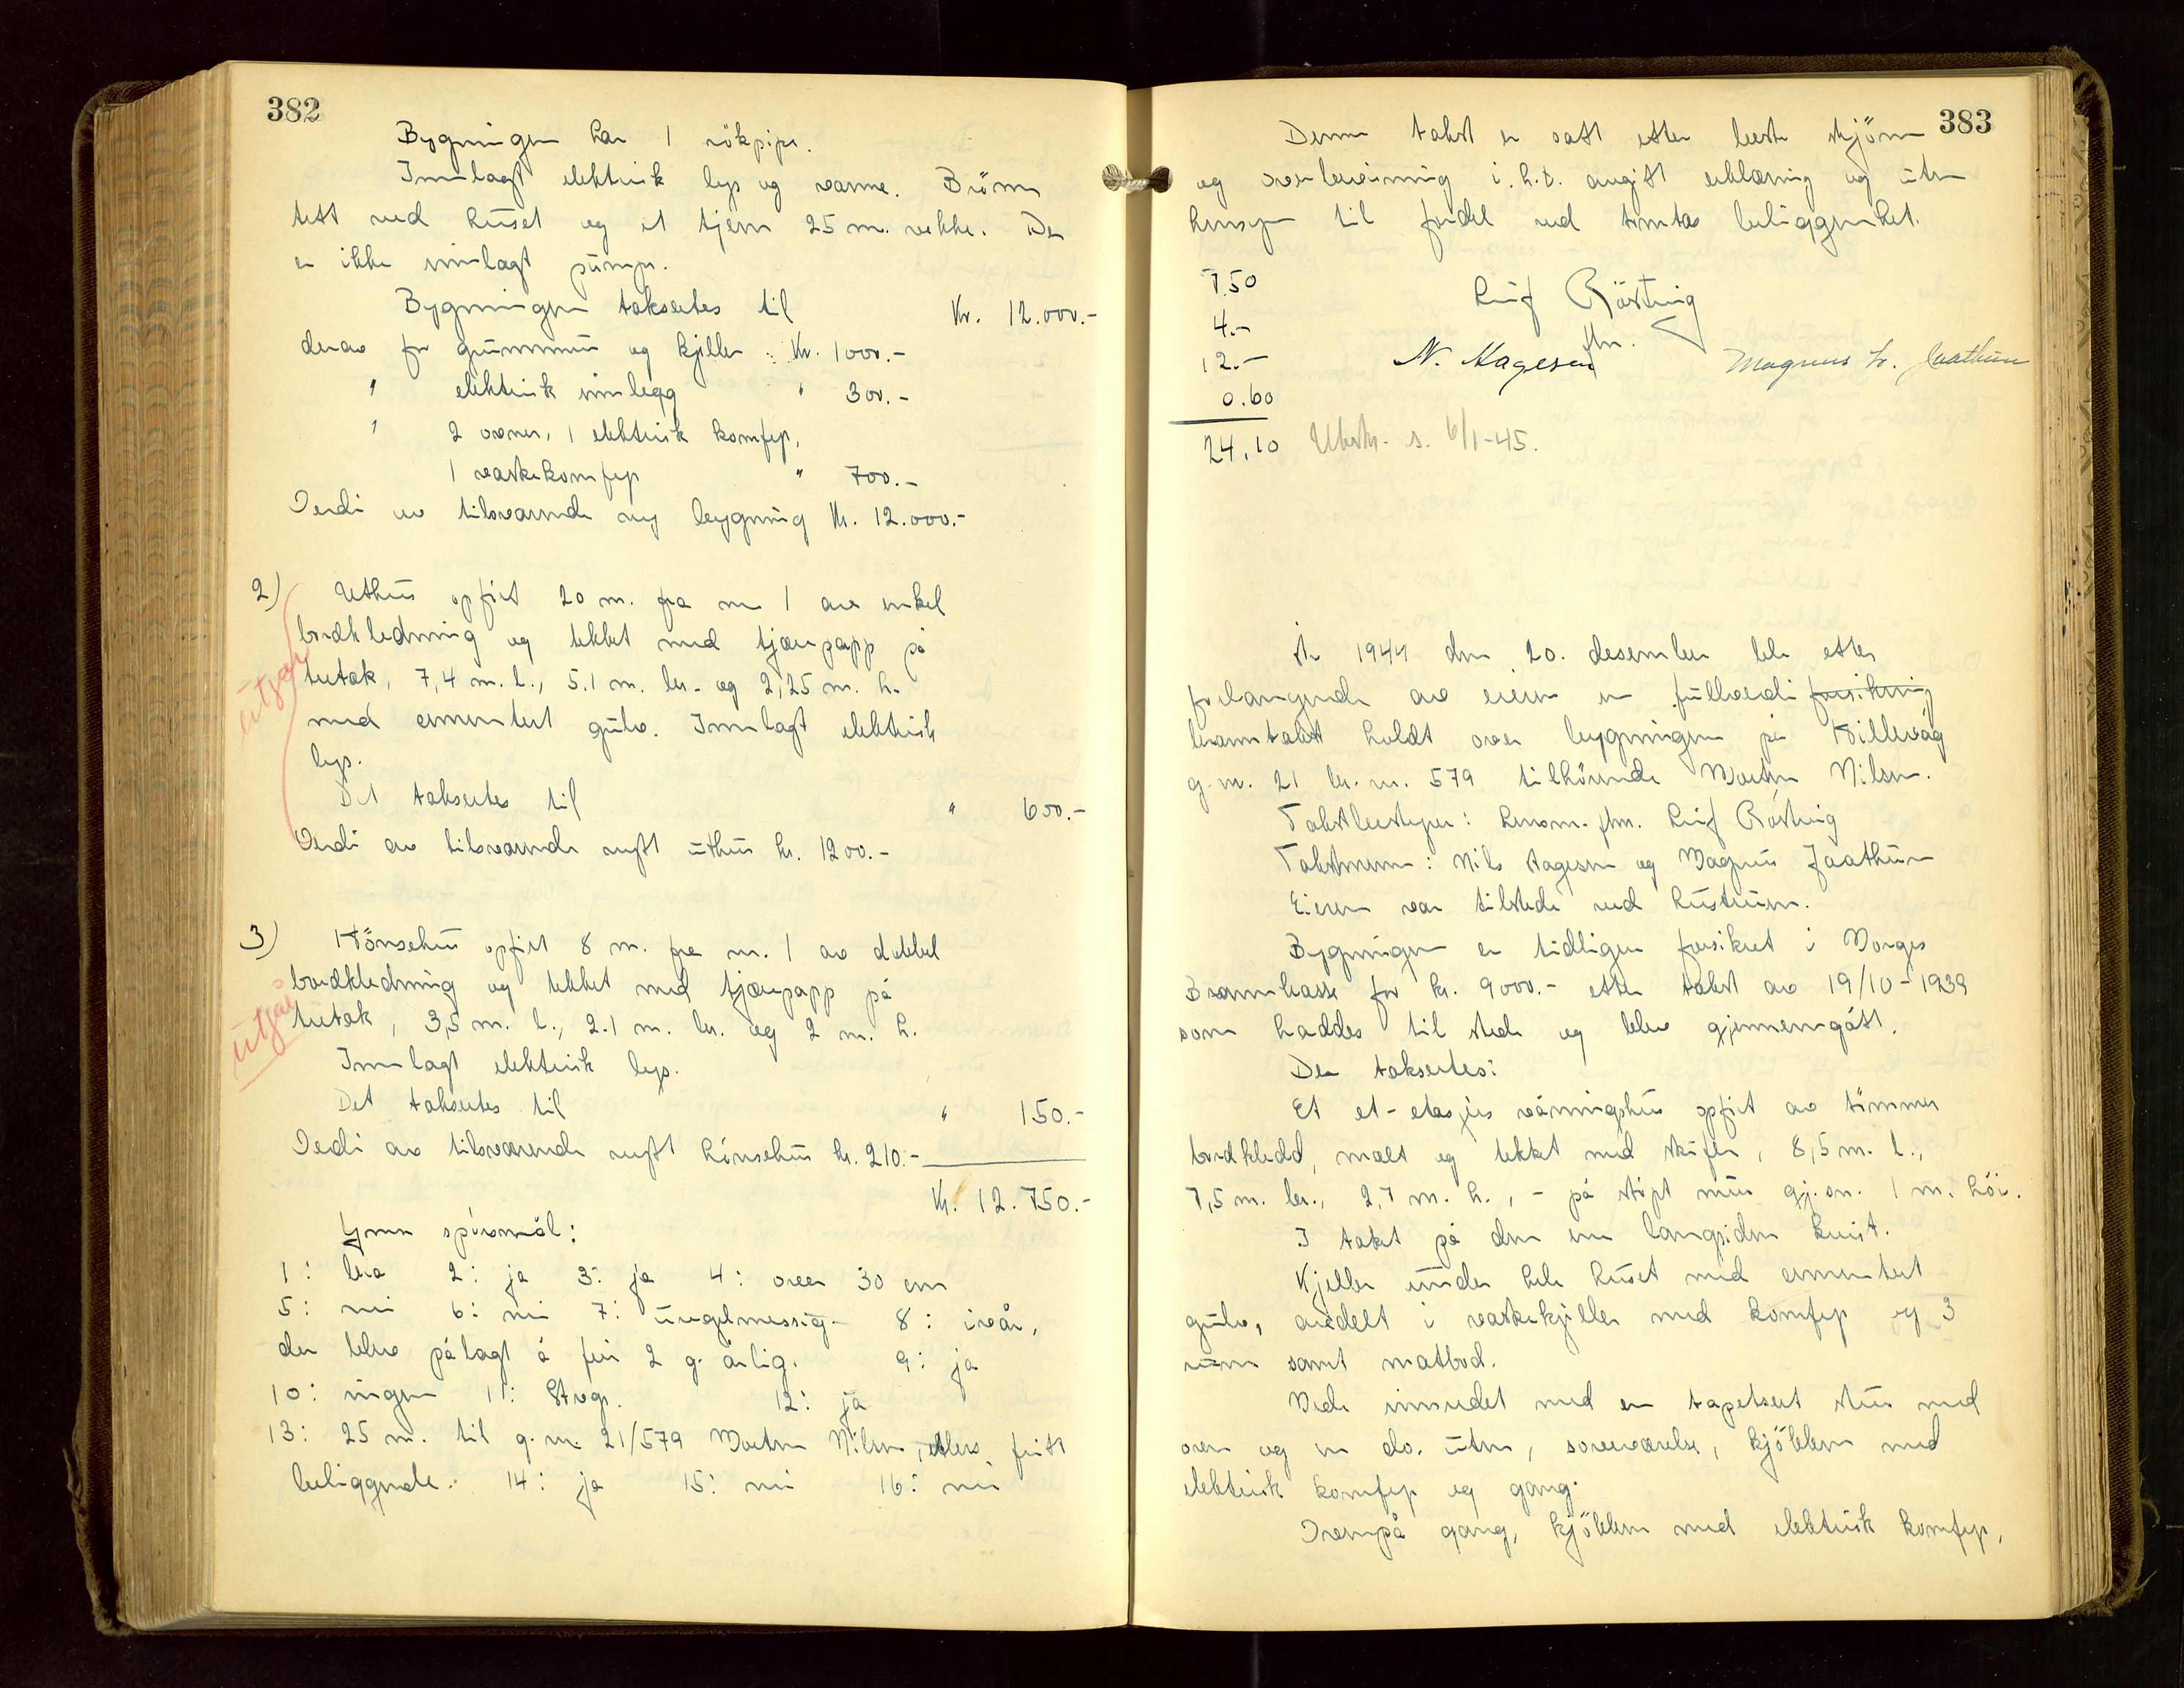 382
Bygningen har 1 rökpipe.
Innlagt elektrisk lys og varme. Brönn
tett ved huset og et tjern 25 m. vekke. Der
er ikke innlagt pumpe.
Bygningen takseres til Kr. 12.000.-
derav for grunnmur og kjeller: Kr. 1000.-
" elektrisk innlegg " 300.-
" 2 ovner, 1 elektrisk komfyr,
1 vaskekomfyr " 700.-
Verdi av tilsvarende ny bygning Kr. 12.000.-
2) Uthus opfört 20 m. fra nr 1 av enkel
bordkledning og tekket med tjærepapp på
utgår
tretak, 7,4 m. l., 5.1 m. br. og 2,25 m. h.
med cementert gulv. Innlagt elektrisk
lys.
Det takseres til " 600.-
Verdi av tilsvarende nytt uthus kr. 1200.-
3) Hönsehus opfört 8 m. fra nr. 1 av dobbel
bordkledning og tekket med tjærepapp på
utgår
tretak, 3,5 m. l., 2.1 m. br. og 2 m. h.
Innlagt elektrisk lys.
Det takseres til " 150.-
Verdi av tilsværende nytt hönsehus kr. 210.-
Kr. 12.750.-
Ymse spörsmål:
1: bra 2: ja 3: ja 4: over 30 cm
5: nei 6: nei 7: uregelmessig 8: iår,
der blev pålagt å feie 2 g. årlig. 9: ja
10: ingen 11: Stvgr. 12: ja
13: 25 m. til g.nr. 21/579 Morten Nilsen, ellers fritt
beliggende. 14: ja 15: nei 16: nei
383
Denne takst er satt etter beste skjönn
og overbevisning i.h.t. avgitt erklæring og uten
hensyn til fordel ved tomtas beliggenhet.
7.50 Leif Rösting
4.- lm.
12.- N. Hagesen Magnus L. Jaathun
0.60
24.10 Utskr. s. 6/1-45.
År 1944 den 20. desember ble etter
forlangende av eieren en fullverdi forsikring
branntakst holdt over bygningen på Hillevåg
g.nr. 21 br.nr. 579 tilhörende Morten Nilsen.
Takstbestyrer: lensm. lm. Leif Rösting
Takstmenn: Nils Hagesen og Magnus Jaathun
Eieren var tilstede ved hustruen.
Bygningen er tidligere forsikret i Norges
Brannkasse for kr. 9000.- etter takst av 19/10-1939
som haddes til stede og blev gjennemgått.
Der takseres:
Et et-etasjes våningshus opfört av tömmer
bordkledd, malt og tekket med skifer, 8,5 m. l.,
7,5 m. br., 2,7 m. h., - på stöpt mur gj.sn. 1 m. höi.
I taket på den ene langsiden kvist.
Kjeller under hele huset med cementert
gulv, avdelt i vaskekjeller med komfyr og 3
rum samt matbod.
Nede innredet med en tapetsert stue med
ovn og en do. uten, soveværelse, kjökken med
elektrisk komfyr og gang.
Ovenpå gang, kjökken med elektrisk komfyr,